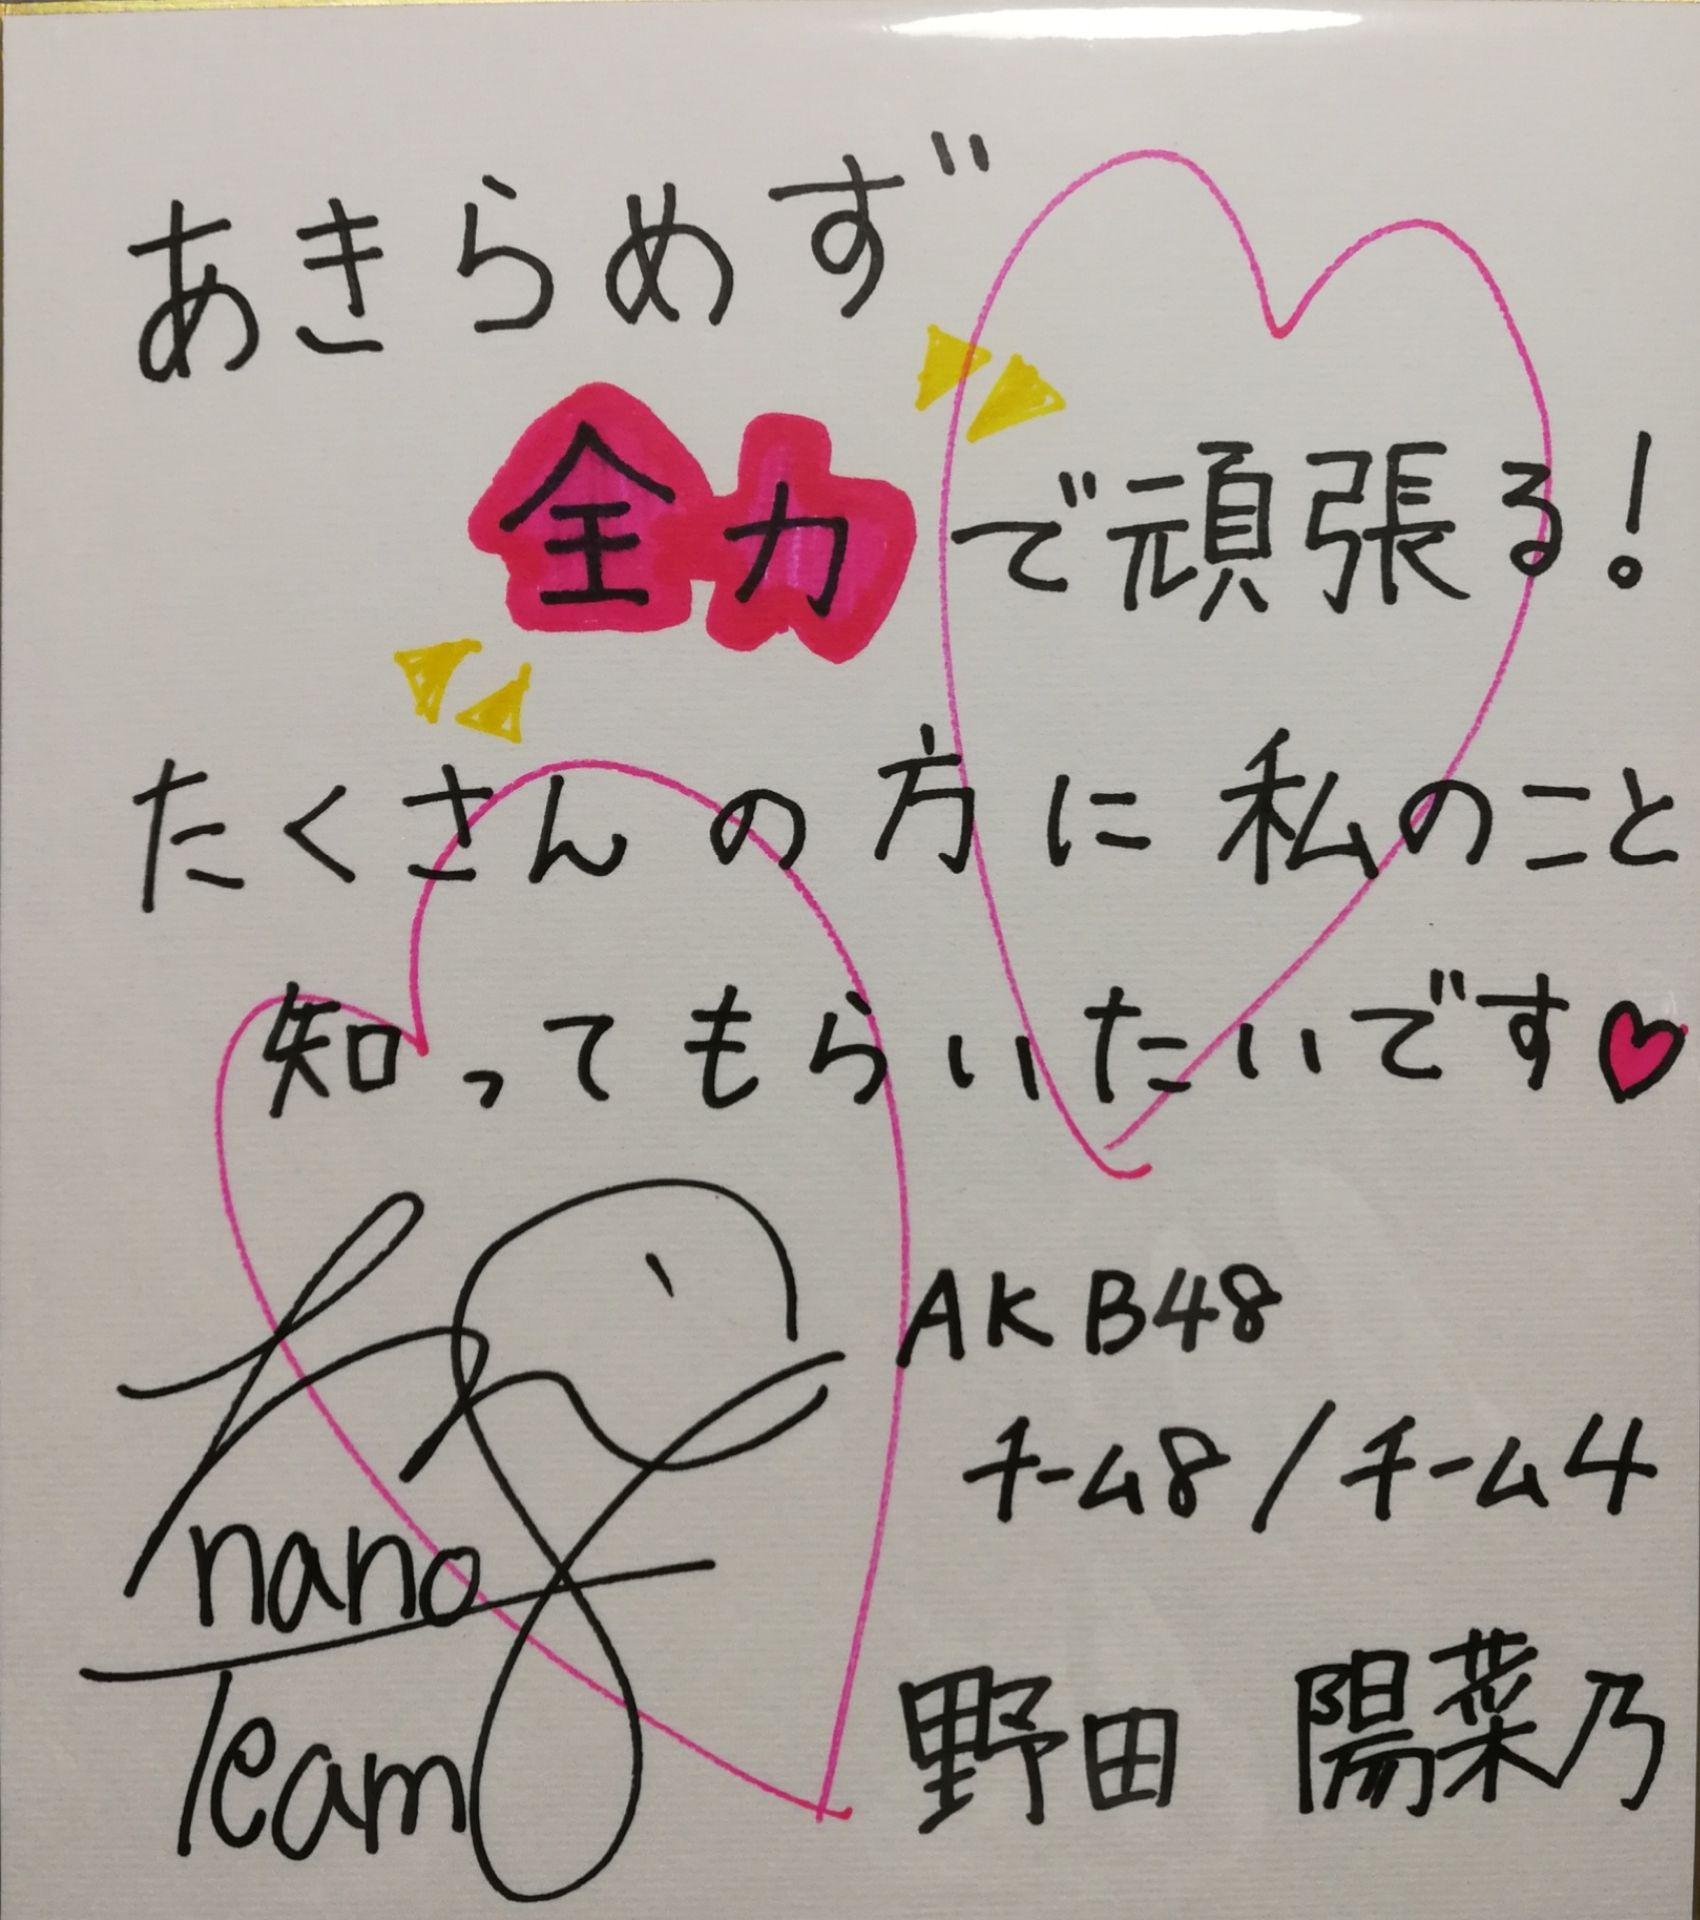 あきらめず
全力で頑張る!
たくさんの方に私のこと
知ってもらいたいです♥
AKB48
チーム8/チーム4
nano
Team8
野田 陽菜乃